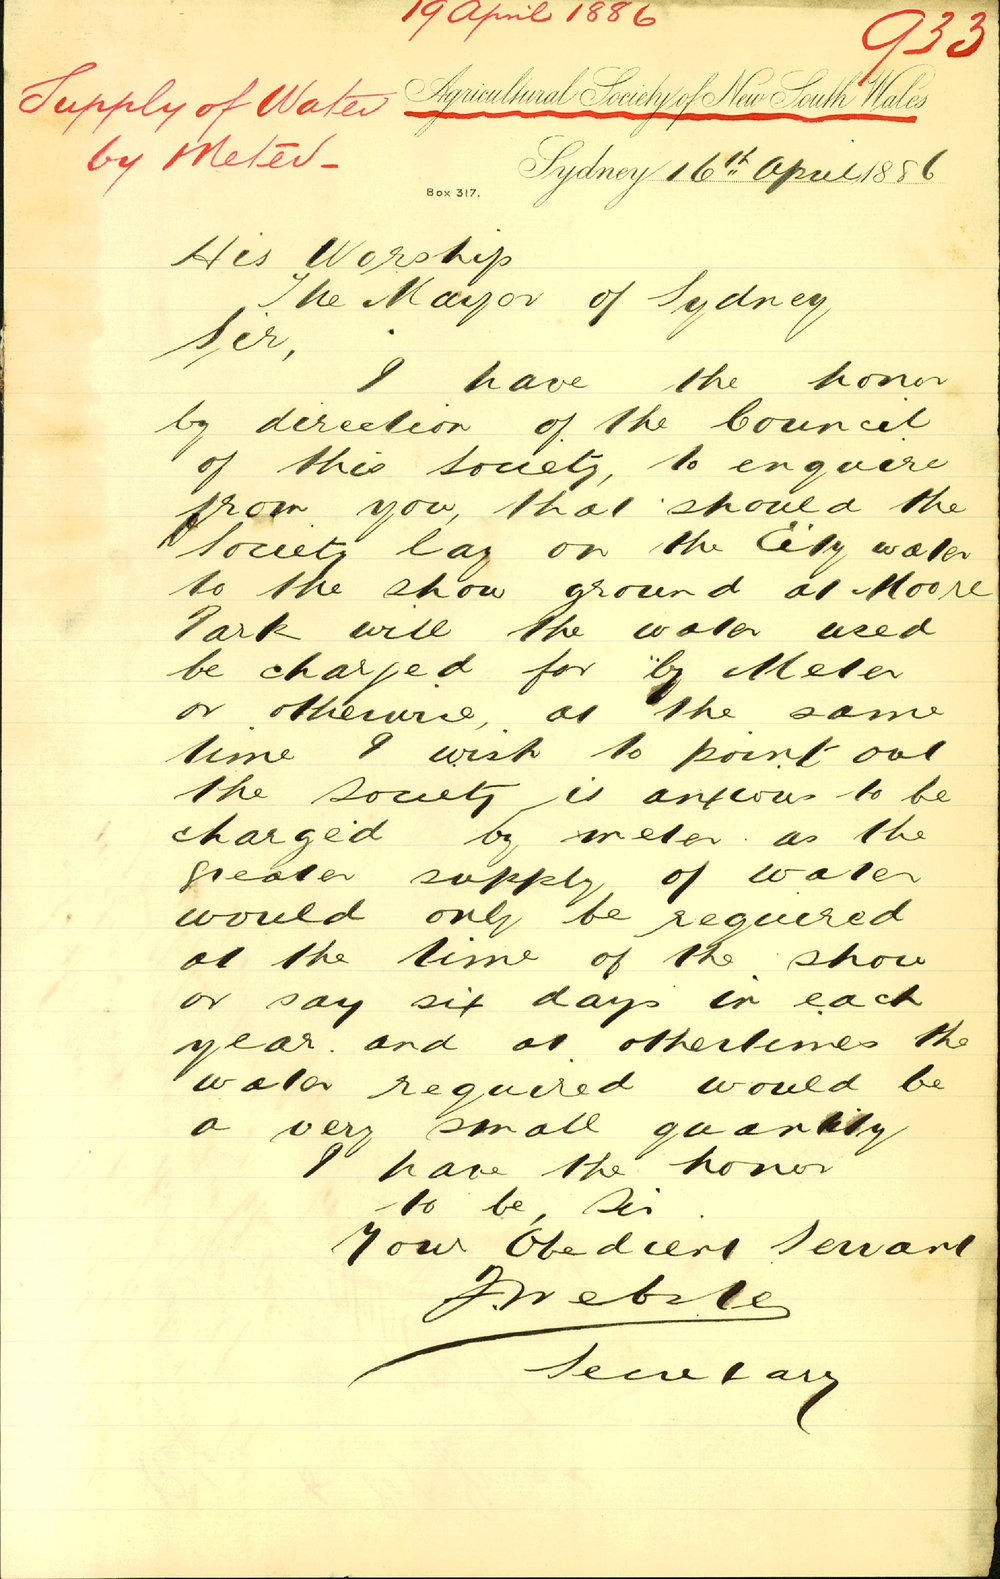 19 April 1886
933
Supply of Water
by Meter -
Agricultural Society of New South Wales
Sydney 16th April 1886
Box 317.
His Worship
The Mayor of Sydney
Sir,
I have the honor
by direction of the Council
of this Society, to enquire
from you, that should the
Society lay on the City water
to the show ground at Moore
Park will the water used
be charged for by Meter
or otherwise, at the same
time I wish to point out
the Society is anxious to be
charged by meter as the
greater supply of water
would only be required
at the time of the show
or say six days in each
year. and at othertimes the
water required would be
a very small quantity
I have the honor
to be, Sir
Your Obedient Servant
F. Webster
Secretary